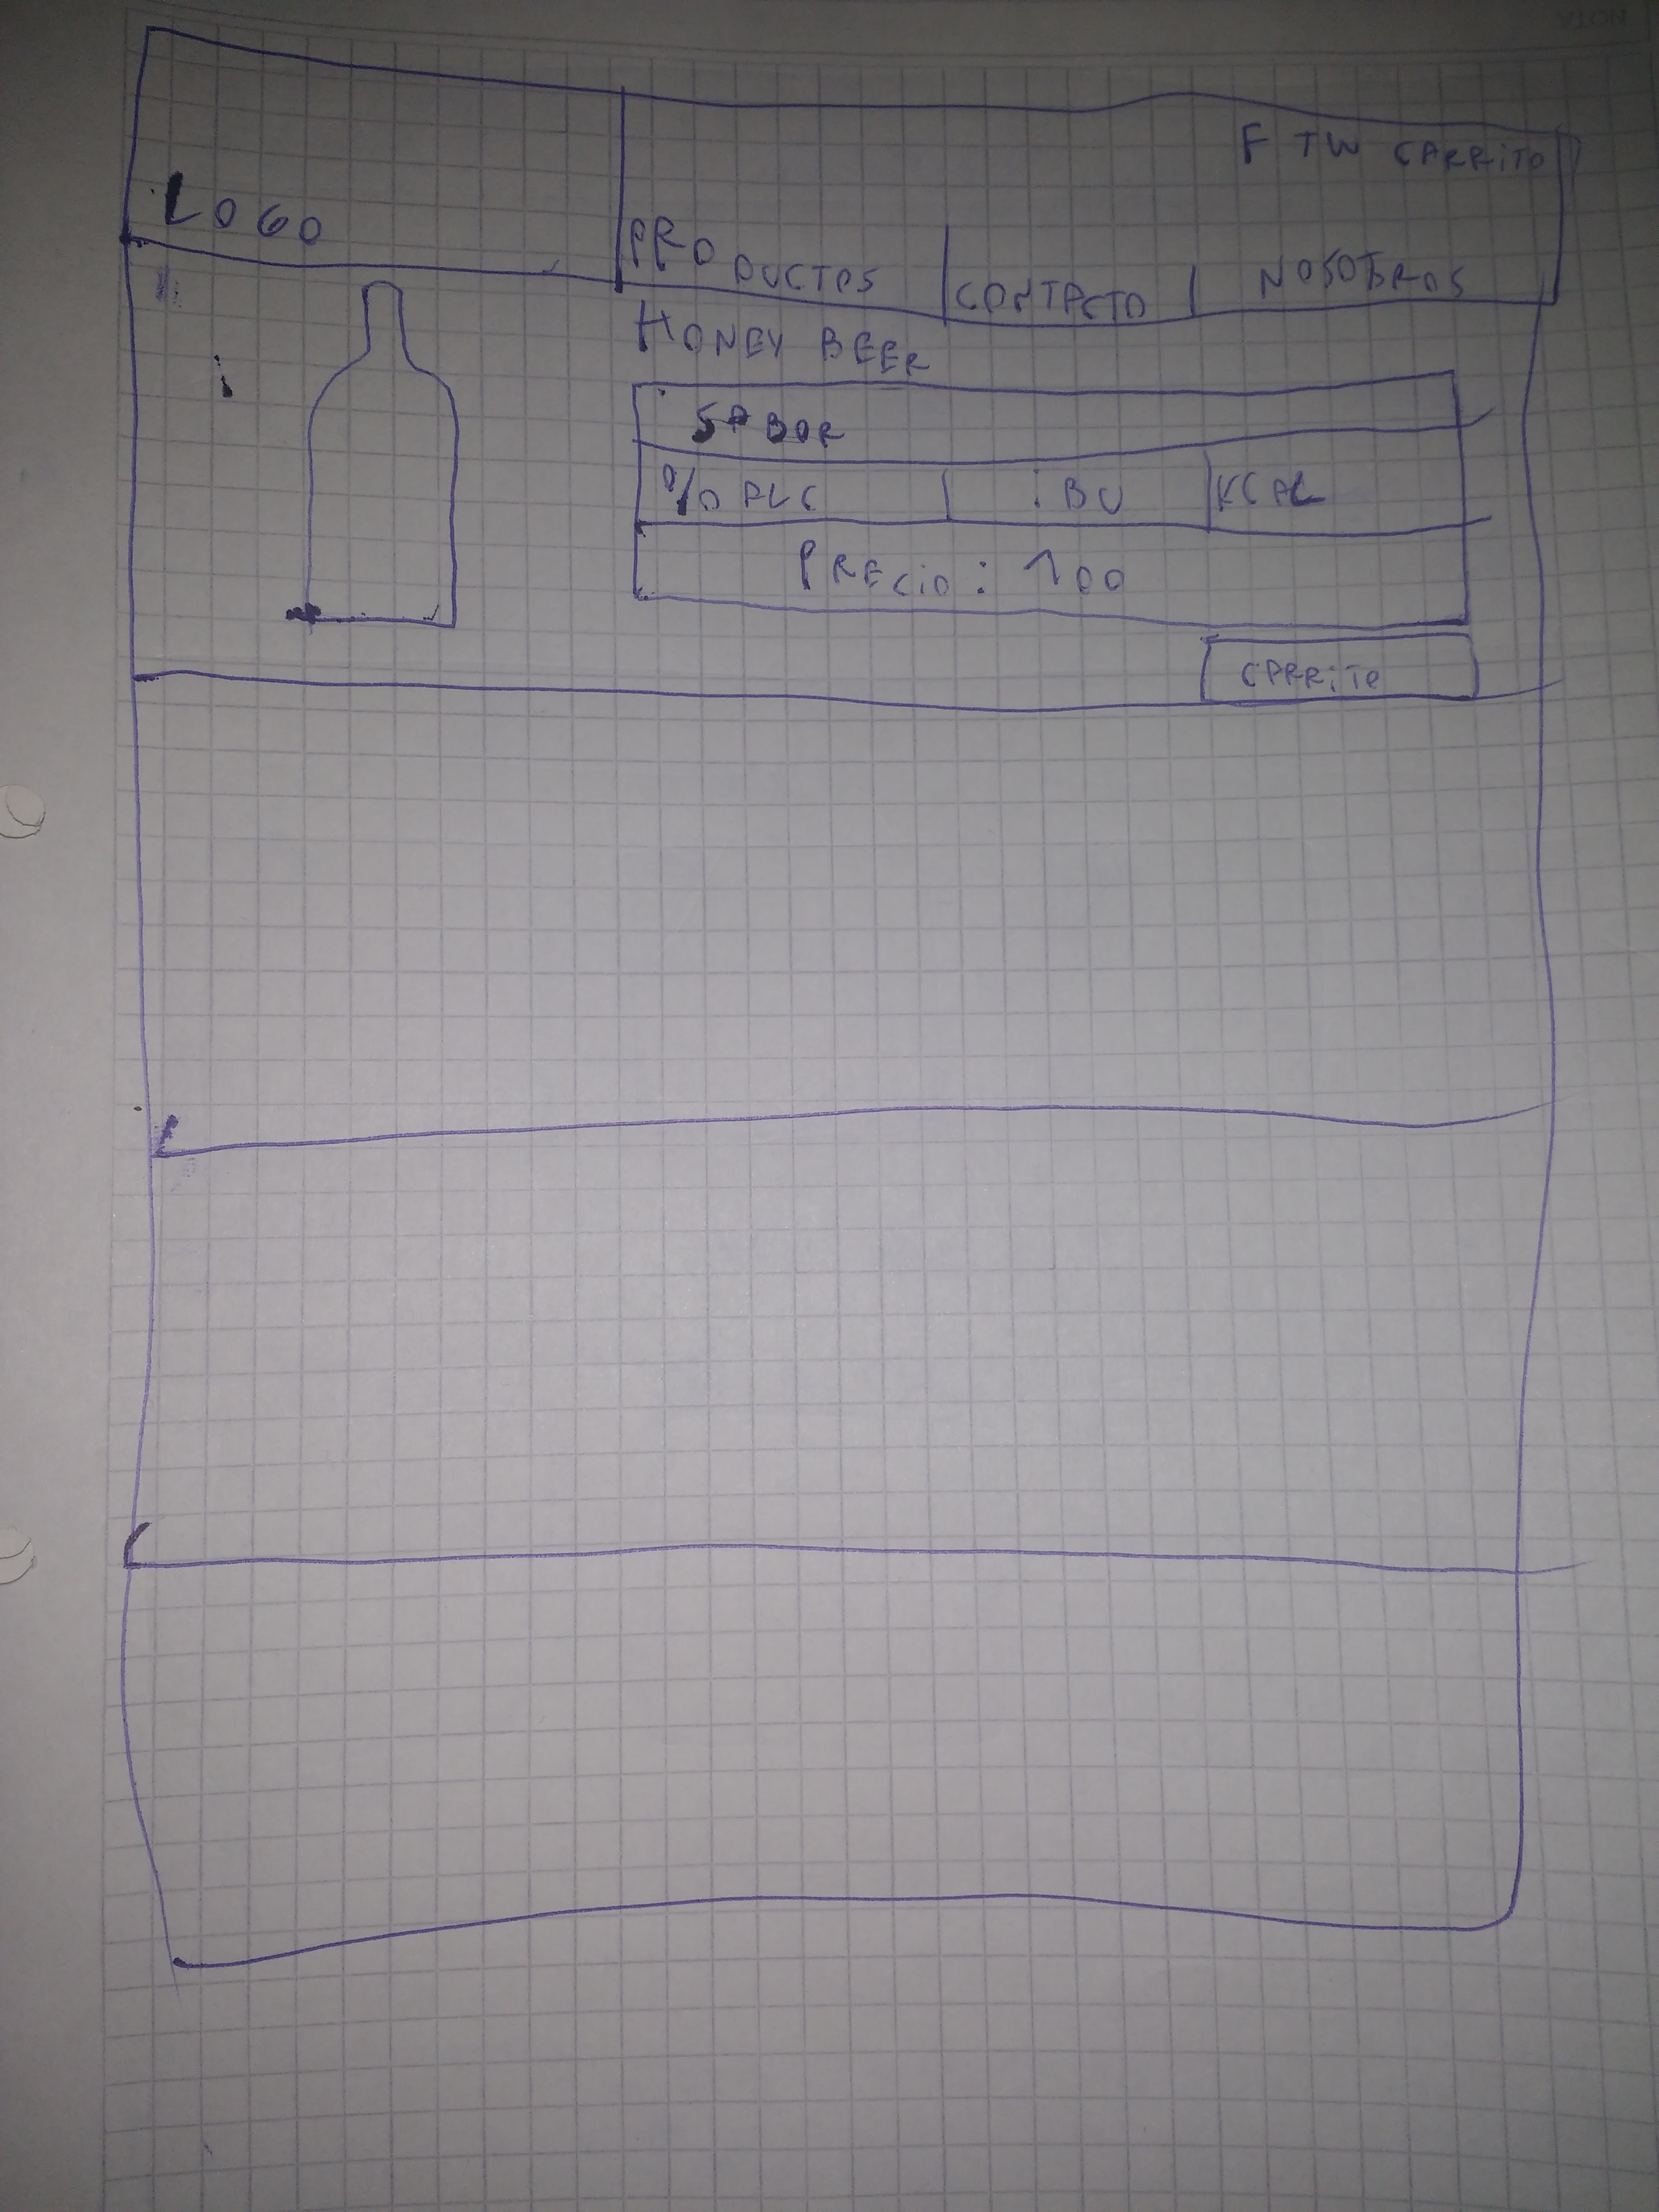 NOTA
F TW CARRITO
LOGO
PRODUCTOS CONTACTO NOSOTROS
HONEY BEER
SABOR
% ALC IBU KCAL
PRECIO: 100
CARRITO